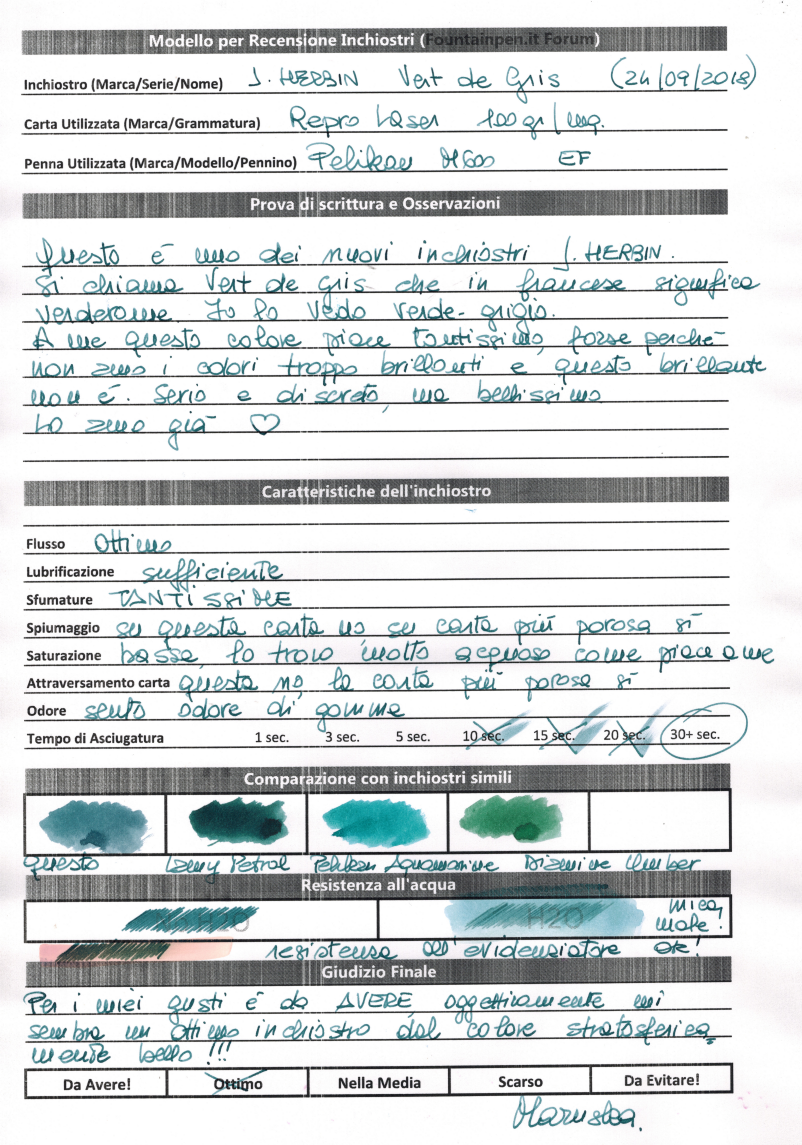 Modello per Recensione Inchiostri (Fountainpen.it Forum)
Inchiostro (Marca/Serie/Nome) J. HERBIN Vert de Gris (24/09/2018)
Carta Utilizzata (Marca/Grammatura) Repro Laser 100 gr/mq.
Penna Utilizzata (Marca/Modello/Pennino) Pelikan M600 EF
Prova di scrittura e Osservazioni
Questo è uno dei nuovi inchiostri J. HERBIN.
Si chiama Vert de Gris che in francese significa
Verderame. Io lo vedo verde-grigio.
A me questo colore piace tantissimo, forse perchè
non amo i colori troppo brillanti e questo brillante
non è. Serio e discreto, ma bellissimo
Lo amo già ♡
Caratteristiche dell'inchiostro
Flusso Ottimo
Lubrificazione sufficiente
Sfumature TANTISSIME
Spiumaggio su questa carta no su carta più porosa sì
Saturazione bassa, lo trovo molto acquoso come piace a me
Attraversamento carta questa no, la carta più porosa sì
Odore sento odore di gomma
Tempo di Asciugatura 1 sec. 3 sec. 5 sec. 10 sec. 15 sec. 20 sec. 30+ sec.
Comparazione con inchiostri simili
questo Lamy Petrol Pelikan Aquamarine Diamine Umber
Resistenza all'acqua
H2O H2O mica male!
resistenza all'evidenziatore ok!
Giudizio Finale
Per i miei gusti è da AVERE, oggettivamente mi
sembra un ottimo inchiostro dal colore stratosferica-
mente bello !!!
Da Avere! Ottimo Nella Media Scarso Da Evitare!
Maruska.